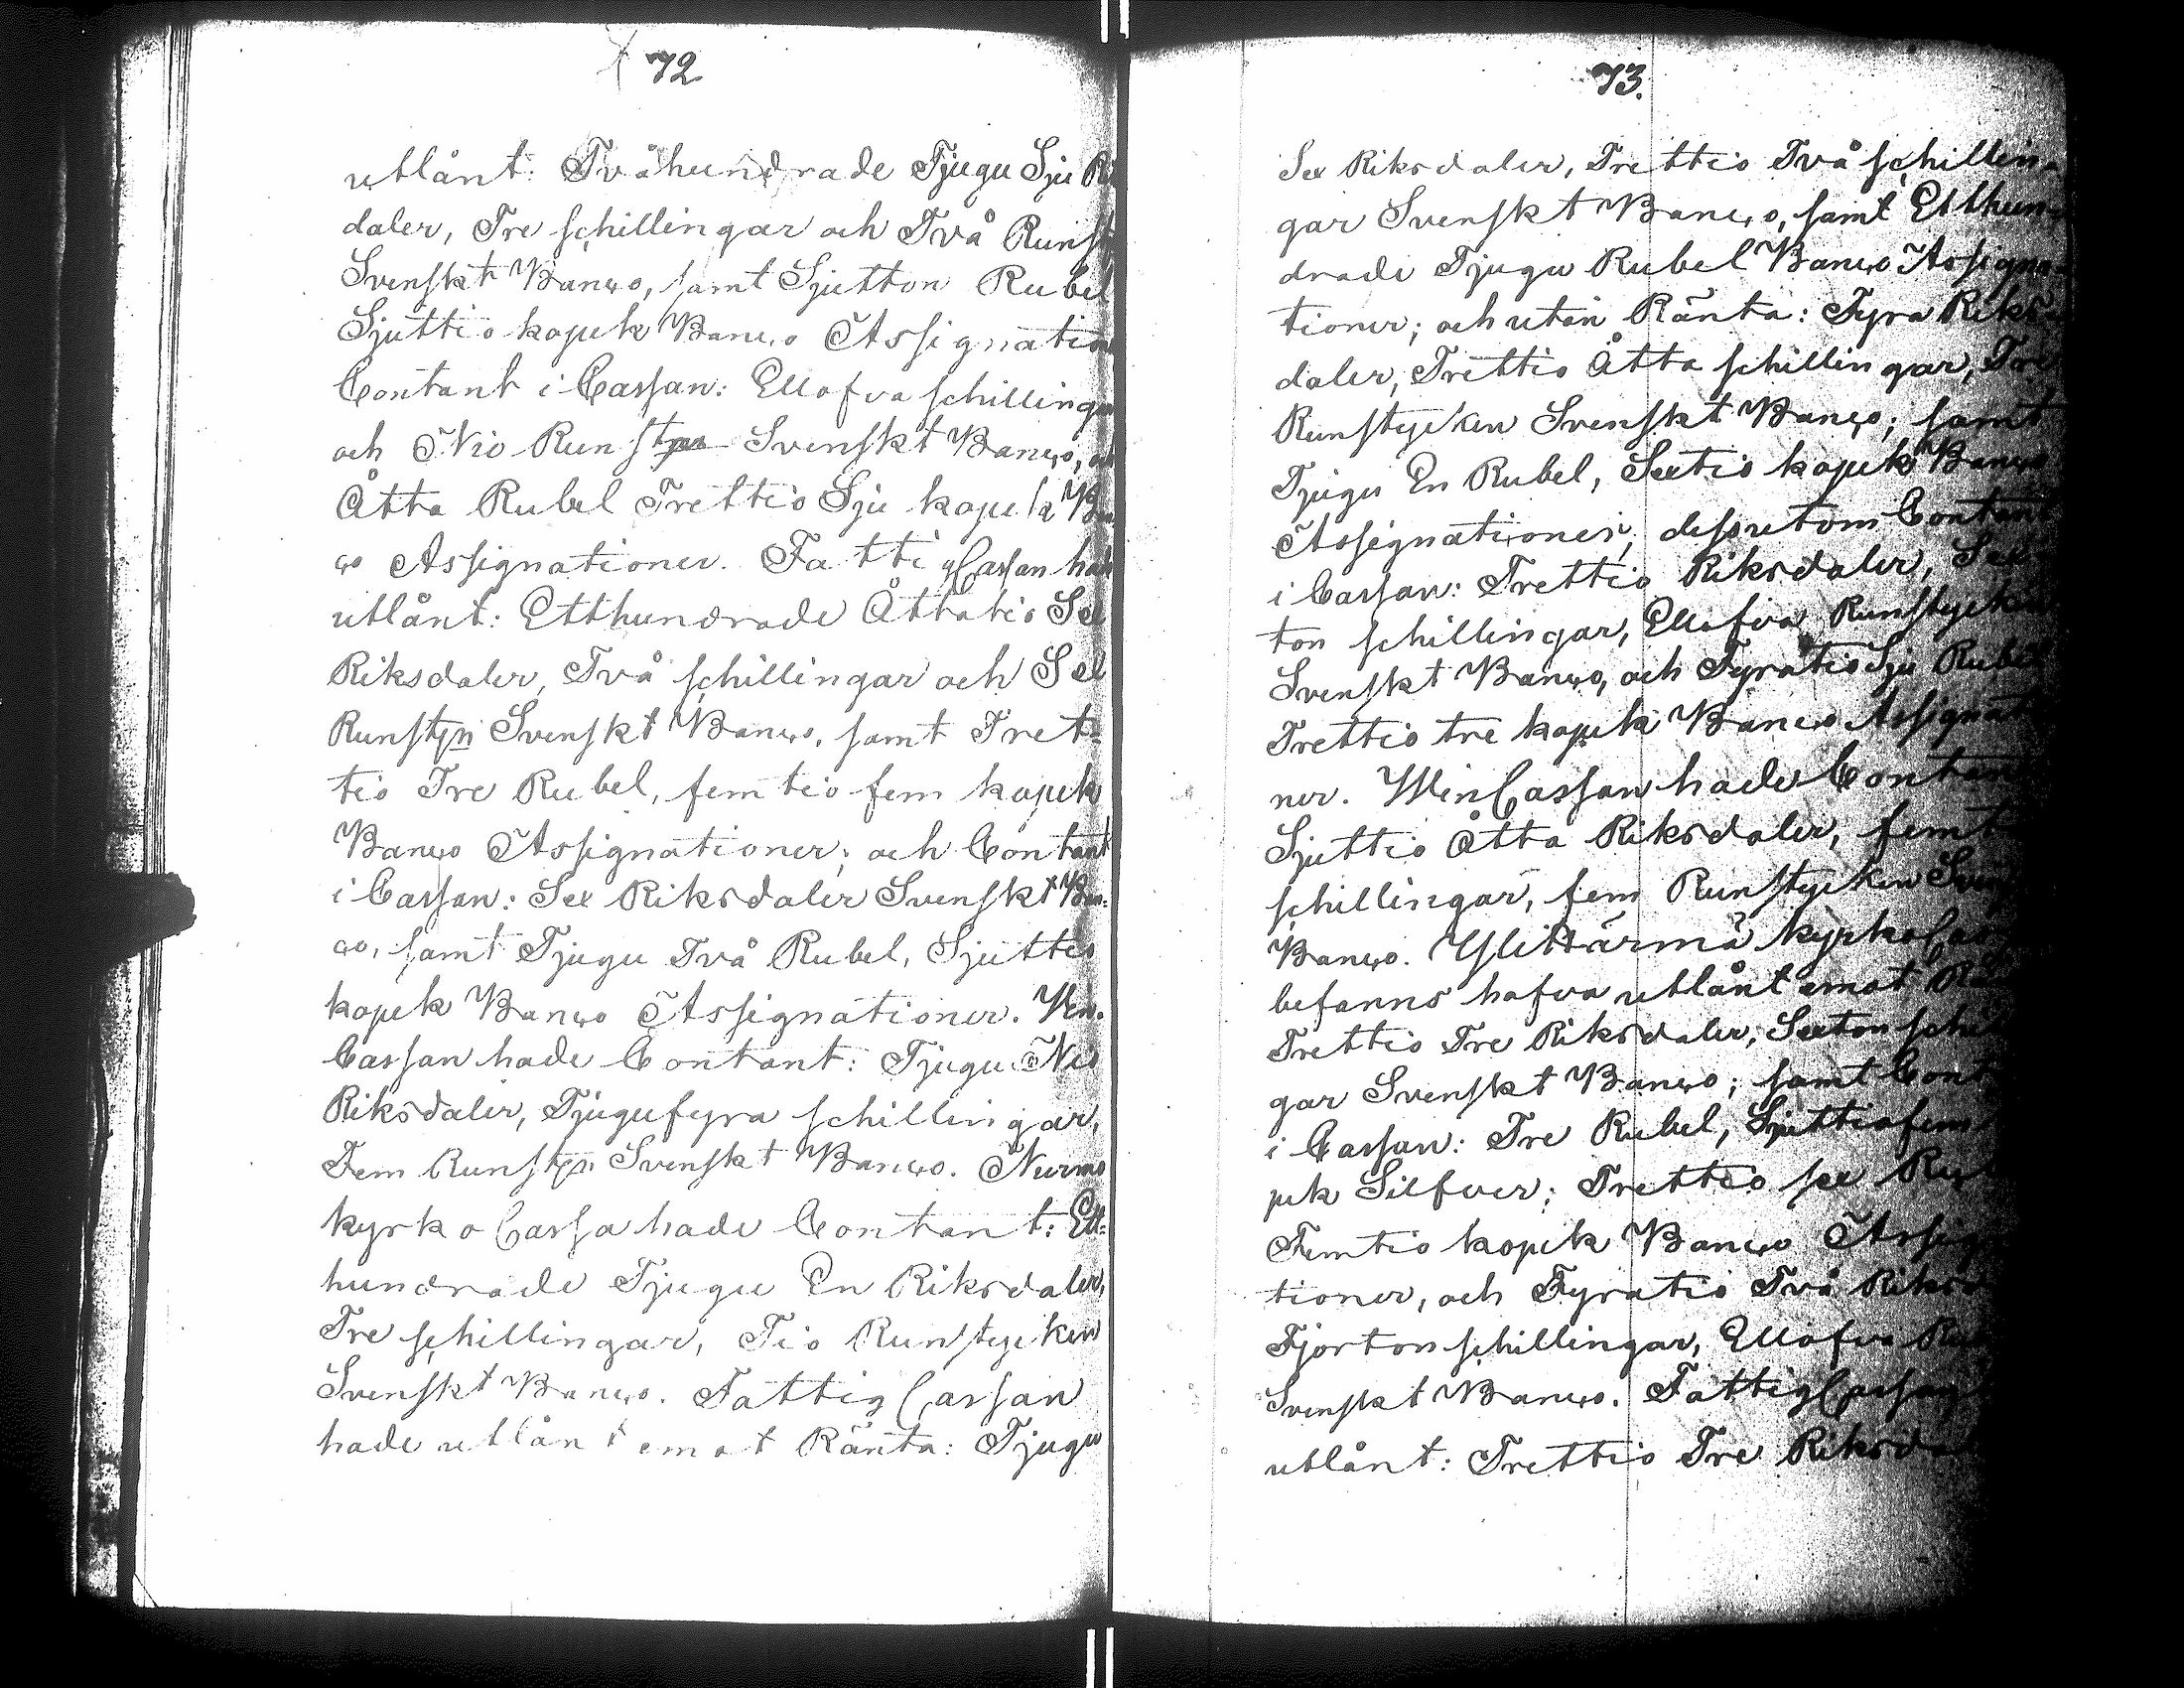 72
utlånt: Tvåhundrade Tjugu Sju
daler, Tre schillingar och Två Runst
Svenskt Banco, samt Sjutton Rubel
Sjuttio kopek Banco Assignatio
Contant i Cassan: Ellofva schillinga
och Nio Runst Svenskt Banco,
Åtta Rubel Trettio Sju kopek Ban
co Assignationer. FattigCassan had
utlånt: Etthundrade Åttatio Sex
Riksdaler, Två schillingar och Sex
Runstyn Svenskt Banco, samt Tret-
tio Tre Rubel, femtio fem kopek
Banco Assignationer; och Contant
i Cassan: Sex Riksdaler Svenskt Ban:
co, samt Tjugu Två Rubel, Sjuttio
kopek Banco Assignationer. Win.
Cassan hade Contant: Tjugu Nio
Riksdaler, Tjugufyra schillingar,
Fem Runstyn Svenskt Banco. Nurmo
kyrko Cassa hade Contant: Ett:
hundrade Tjugu En Riksdaler,
Tre schillingar, Tio Runstycken
Svenskt Banco. FattigCassan
hade utlånt emot Ränta: Tjugu
73.
Sex Riksdaler, Trettio Två schillin-
gar Svenskt Banco, samt Etthun-
drade Tjugu Rubel Banco Assigna-
tioner; och utan Ränta: Fyra Riks-
daler, Trettio Åtta schillingar, Tre
Runstycken Svenskt Banco; samt
Tjugu En Rubel, Sextio kopek Banco
Assignationer, dessutom Contant
i Cassan: Trettio Riksdaler, Sex
ton schillingar, Ellofva Runstycken
Svenskt Banco, och Fyratio Sju Rubel
Trettio tre kopek Banco Assignat
ner. WinCassan hade Contan
Sjuttio Åtta Riksdaler, femt
schillingar, fem Runstycken Sven
Banco. Ylittärmä kyrkoCas
befanns hafva utlånt emot Rän
Trettio Tre Riksdaler, Sexton schil
gar Svenskt Banco; samt Cont
i Cassan: Tre Rubel, Sjuttiofem
pek Silfver; Trettio sex Ru
Femtio kopek Banco Assig
tioner, och Fyratio Två Riksd
Fjorton schillingar, Ellofva Run
Svenskt Banco. FattigCassan
utlånt: Trettio Tre Riksda